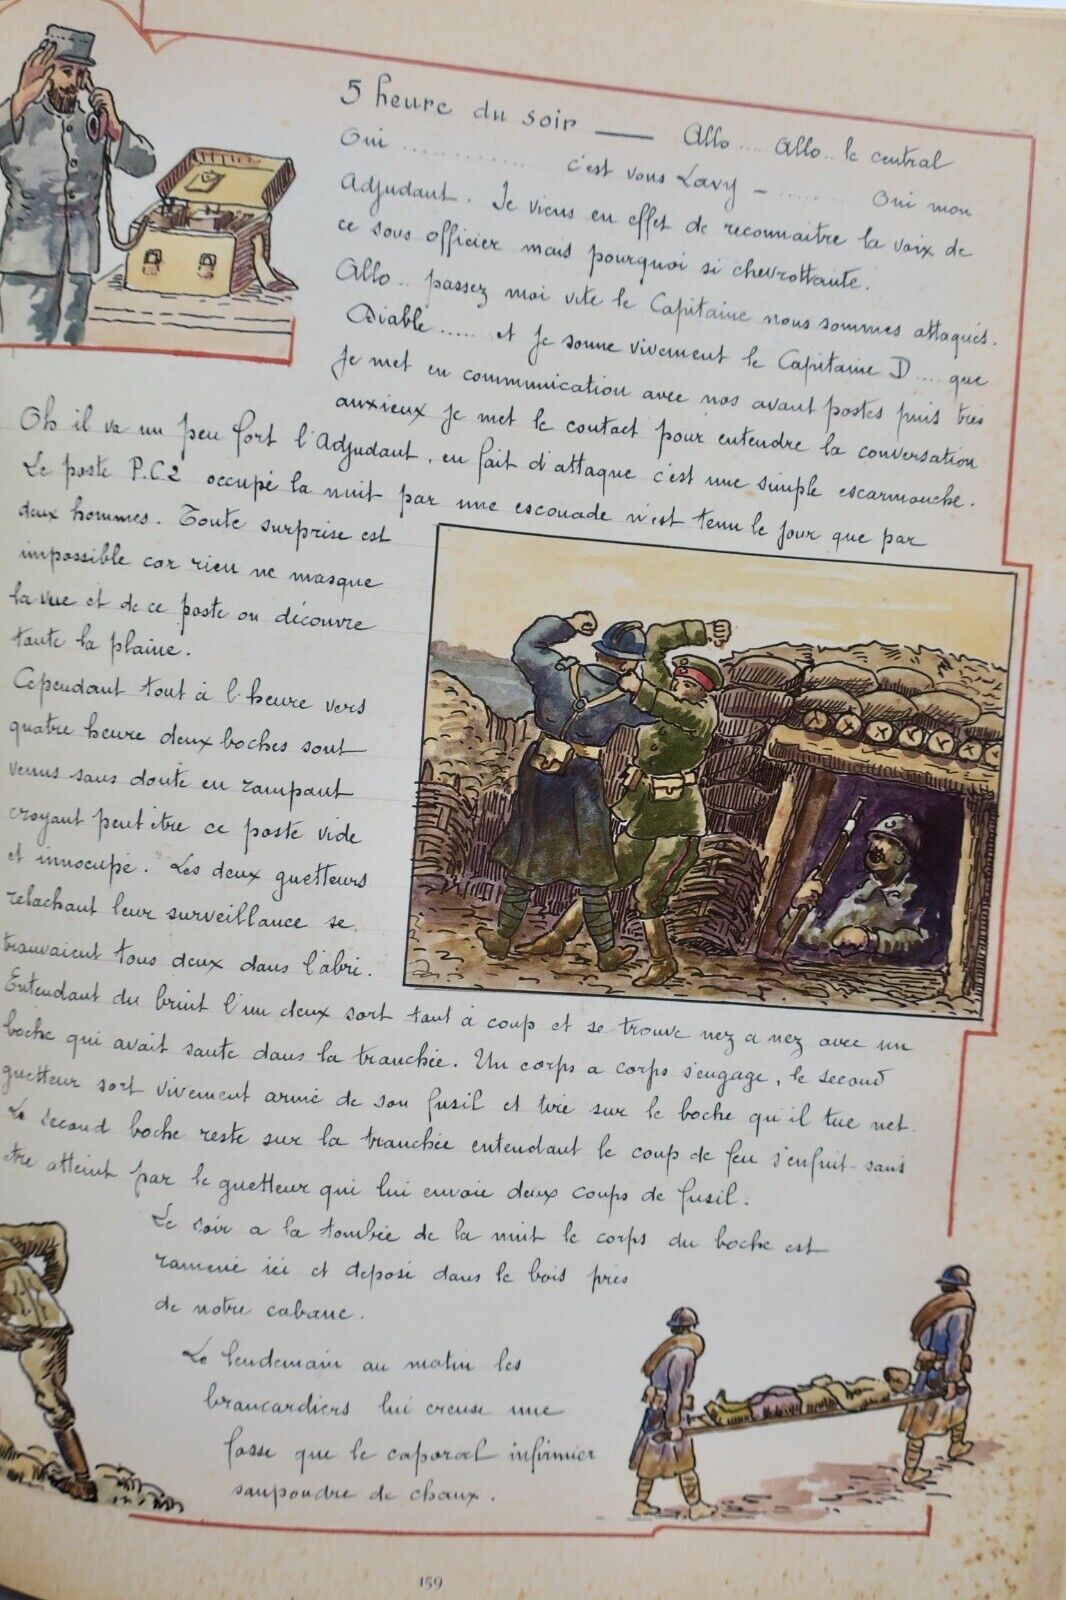 5 heure du soir — Allo .... Allo.. le central
Oui ............. c'est vous Lavy – ......... Oui mon
Adjudant. Je viens en effet de reconnaitre la voix de
ce sous officier mais pourquoi si chevrottante.
Allo .. passez moi vite le Capitaine nous sommes attaqués.
Diable ..... et je sonne vivement le Capitaine D .... que
je met en communication avec nos avant postes puis très
anxieux je met le contact pour entendre la conversation
Oh il va un peu fort l'Adjudant, en fait d'attaque c'est une simple escarmouche.
Le poste P.C2 occupé la nuit par une escouade n'est tenu le jour que par
deux hommes. Toute surprise est
impossible car rien ne masque
la vue et de ce poste on découvre
toute la plaine.
Cependant tout à l'heure vers
quatre heure deux boches sont
venus sans doute en rampant
croyant peut être ce poste vide
et innocupé. Les deux guetteurs
relachant leur surveillance se
trouvaient tous deux dans l'abri.
Entendant du bruit l'un deux sort tout à coup et se trouve nez a nez avec un
boche qui avait sauté dans la tranchée. Un corps a corps s'engage, le second
guetteur sort vivement armé de son fusil et tire sur le boche qu'il tue net.
Le second boche reste sur la tranchée entendant le coup de feu s'enfuit sans
etre atteint par le guetteur qui lui envoie deux coups de fusil.
Le soir a la tombée de la nuit le corps du boche est
ramené ici et deposé dans le bois près
de notre cabane.
Le lendemain au matin les
brancardiers lui creuse une
fosse que le caporal infirmier
saupoudre de chaux.
159